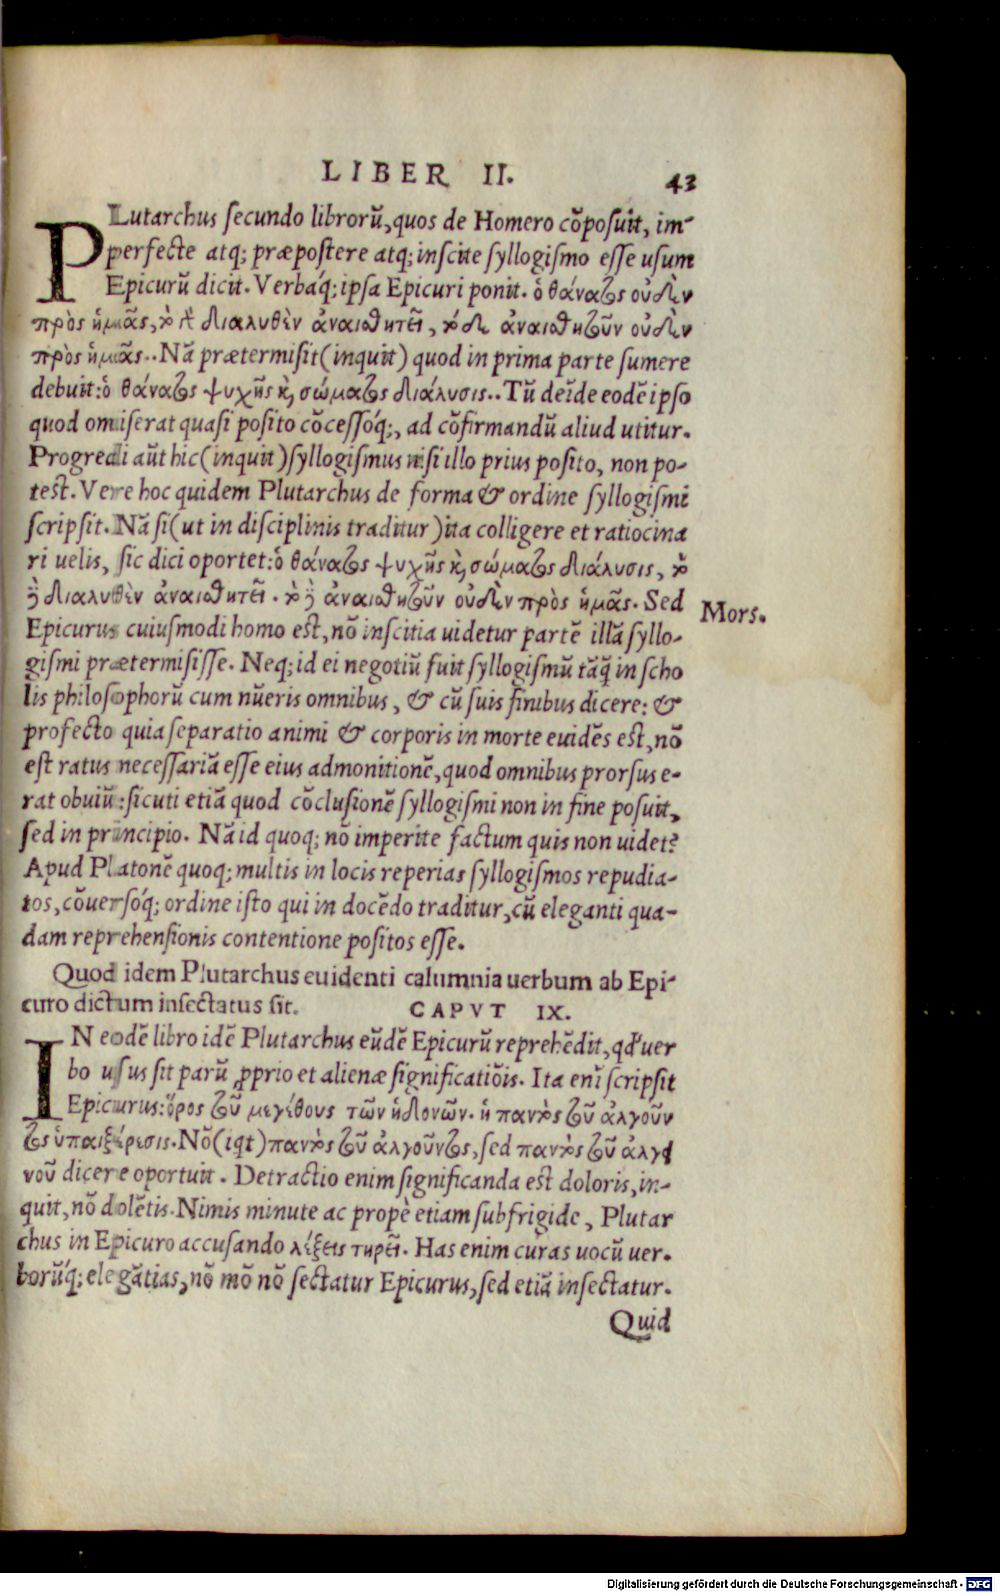 LIBER II. 43
PLutarchus ſecundo librorũ, quos de Homero cõpoſuit, im-
perfecte atq; præpoſtere atq; inſcite ſyllogiſmo eſſe uſum
Epicurũ dicit. Verbáq; ipſa Epicuri ponit. ὁ θάνατος οὐδὲν
πρὸς ἡμᾶς, τὸ γὰρ διαλυθὲν ἀναισθητεῖ, τὸ δὲ ἀναισθητοῦν οὐδὲν
πρὸς ἡμᾶς.. Nã prætermiſit (inquit) quod in prima parte ſumere
debuit: ὁ θάνατος ψυχῆς κỳ σώματος διάλυσις.. Tũ deĩde eodẽ ipſo
quod omiſerat quaſi poſito cõceſſóq;, ad cõfirmandũ aliud utitur.
Progredi aũt hic (inquit) ſyllogiſmus niſi illo prius poſito, non po-
teſt. Vere hoc quidem Plutarchus de forma & ordine ſyllogiſmi
ſcripſit. Nã ſi (ut in diſciplinis traditur) ita colligere et ratiocina
ri uelis, ſic dici oportet: ὁ θάνατος ψυχῆς κỳ σώματος διάλυσις, τὸ
δὲ διαλυθὲν ἀναισθητεῖ. τὸ δὲ ἀναισθητοῦν οὐδὲν πρὸς ἡμᾶς. Sed
Mors.
Epicurus cuiuſmodi homo eſt, nõ inſcitia uidetur partẽ illã ſyllo-
giſmi prætermiſiſſe. Neq; id ei negotiũ fuit ſyllogiſmũ tãq̃ in ſcho
lis philoſophorũ cum nũeris omnibus, & cũ ſuis finibus dicere: &
profecto quia ſeparatio animi & corporis in morte euidẽs eſt, nõ
eſt ratus neceſſariã eſſe eius admonitionẽ, quod omnibus prorſus e-
rat obuiũ: ſicuti etiã quod cõcluſionẽ ſyllogiſmi non in fine poſuit,
ſed in principio. Nã id quoq; nõ imperite factum quis non uidet?
Apud Platonẽ quoq; multis in locis reperias ſyllogiſmos repudia-
tos, cõuerſóq; ordine iſto qui in docẽdo traditur, cũ eleganti qua-
dam reprehenſionis contentione poſitos eſſe.
Quod idem Plutarchus euidenti calumnia uerbum ab Epi-
curo dictum inſectatus ſit. CAPVT IX.
IN eodẽ libro idẽ Plutarchus eũdẽ Epicurũ reprehẽdit, qd' uer
bo uſus ſit parũ ꝓprio et alienæ ſignificatiõis. Ita enĩ ſcripſit
Epicurus: ὅρος τοῦ μεγέθους τῶν ἡδονῶν. ἡ παντὸς τοῦ ἀλγοῦν
τος ὑπεξαίρεσις. Nõ (iqt) παντὸς τοῦ ἀλγοῦντος, ſed παντὸς τοῦ ἀλγει
νοῦ dicere oportuit. Detractio enim ſignificanda eſt doloris, in-
quit, nõ dolẽtis. Nimis minute ac propè etiam ſubfrigide, Plutar
chus in Epicuro accuſando λέξεις τηρεῖ. Has enim curas uocũ uer-
borũq́; elegãtias, nõ mõ nõ ſectatur Epicurus, ſed etiã inſectatur.
Quid
Digitalisierung gefördert durch die Deutsche Forschungsgemeinschaft - DFG